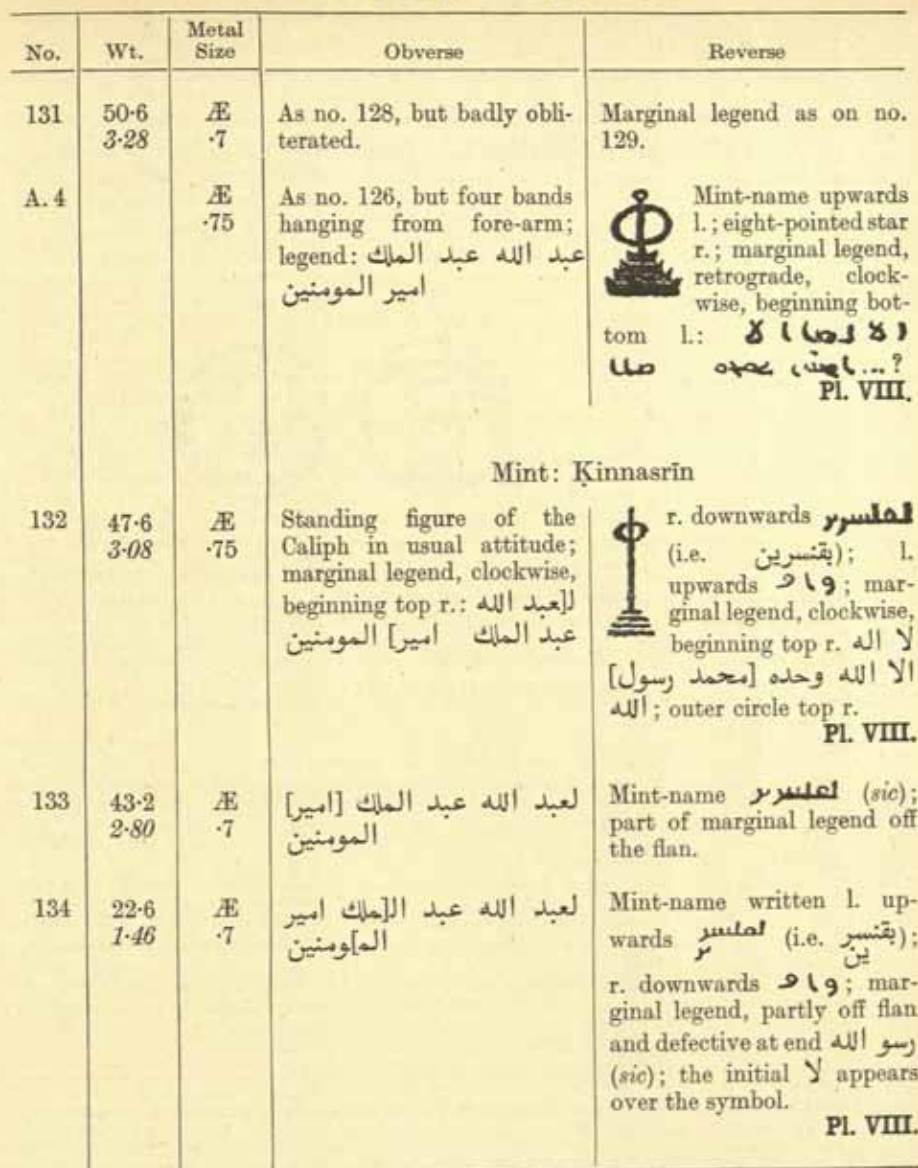 No. Wt. Metal Size Obverse Reverse
131
50·6
3·28
Æ
·7
As no. 128, but badly obli-
terated.
Marginal legend as on no.
129.
A. 4
Æ
·75
As no. 126, but four bands
hanging from fore-arm;
legend: عبد الله عبد الملك
امير المومنين
Mint-name upwards
l.; eight-pointed star
r.; marginal legend,
retrograde, clock-
wise, beginning bot-
tom l.:
...?
Pl. VIII.
Mint: Ḳinnasrīn
132
47·6
3·08
Æ
·75
Standing figure of the
Caliph in usual attitude;
marginal legend, clockwise,
beginning top r.: لـ[ـعبد الله
عبد الملك امير] المومنين
r. downwards
(i.e. بقنسرين); l.
upwards واڡ; mar-
ginal legend, clockwise,
beginning top r. لا اله
الا الله وحده [محمد رسول]
الله; outer circle top r.
Pl. VIII.
133
43·2
2·80
Æ
·7
لعبد الله عبد الملك [امير]
المومنين
Mint-name (sic);
part of marginal legend off
the flan.
134
22·6
1·46
Æ
·7
لعبد الله عبد ا[لملك امير
المـ]ـومنين
Mint-name written l. up-
wards (i.e. بقنسر
ين);
r. downwards واڡ; mar-
ginal legend, partly off flan
and defective at end رسو الله
(sic); the initial لا appears
over the symbol.
Pl. VIII.